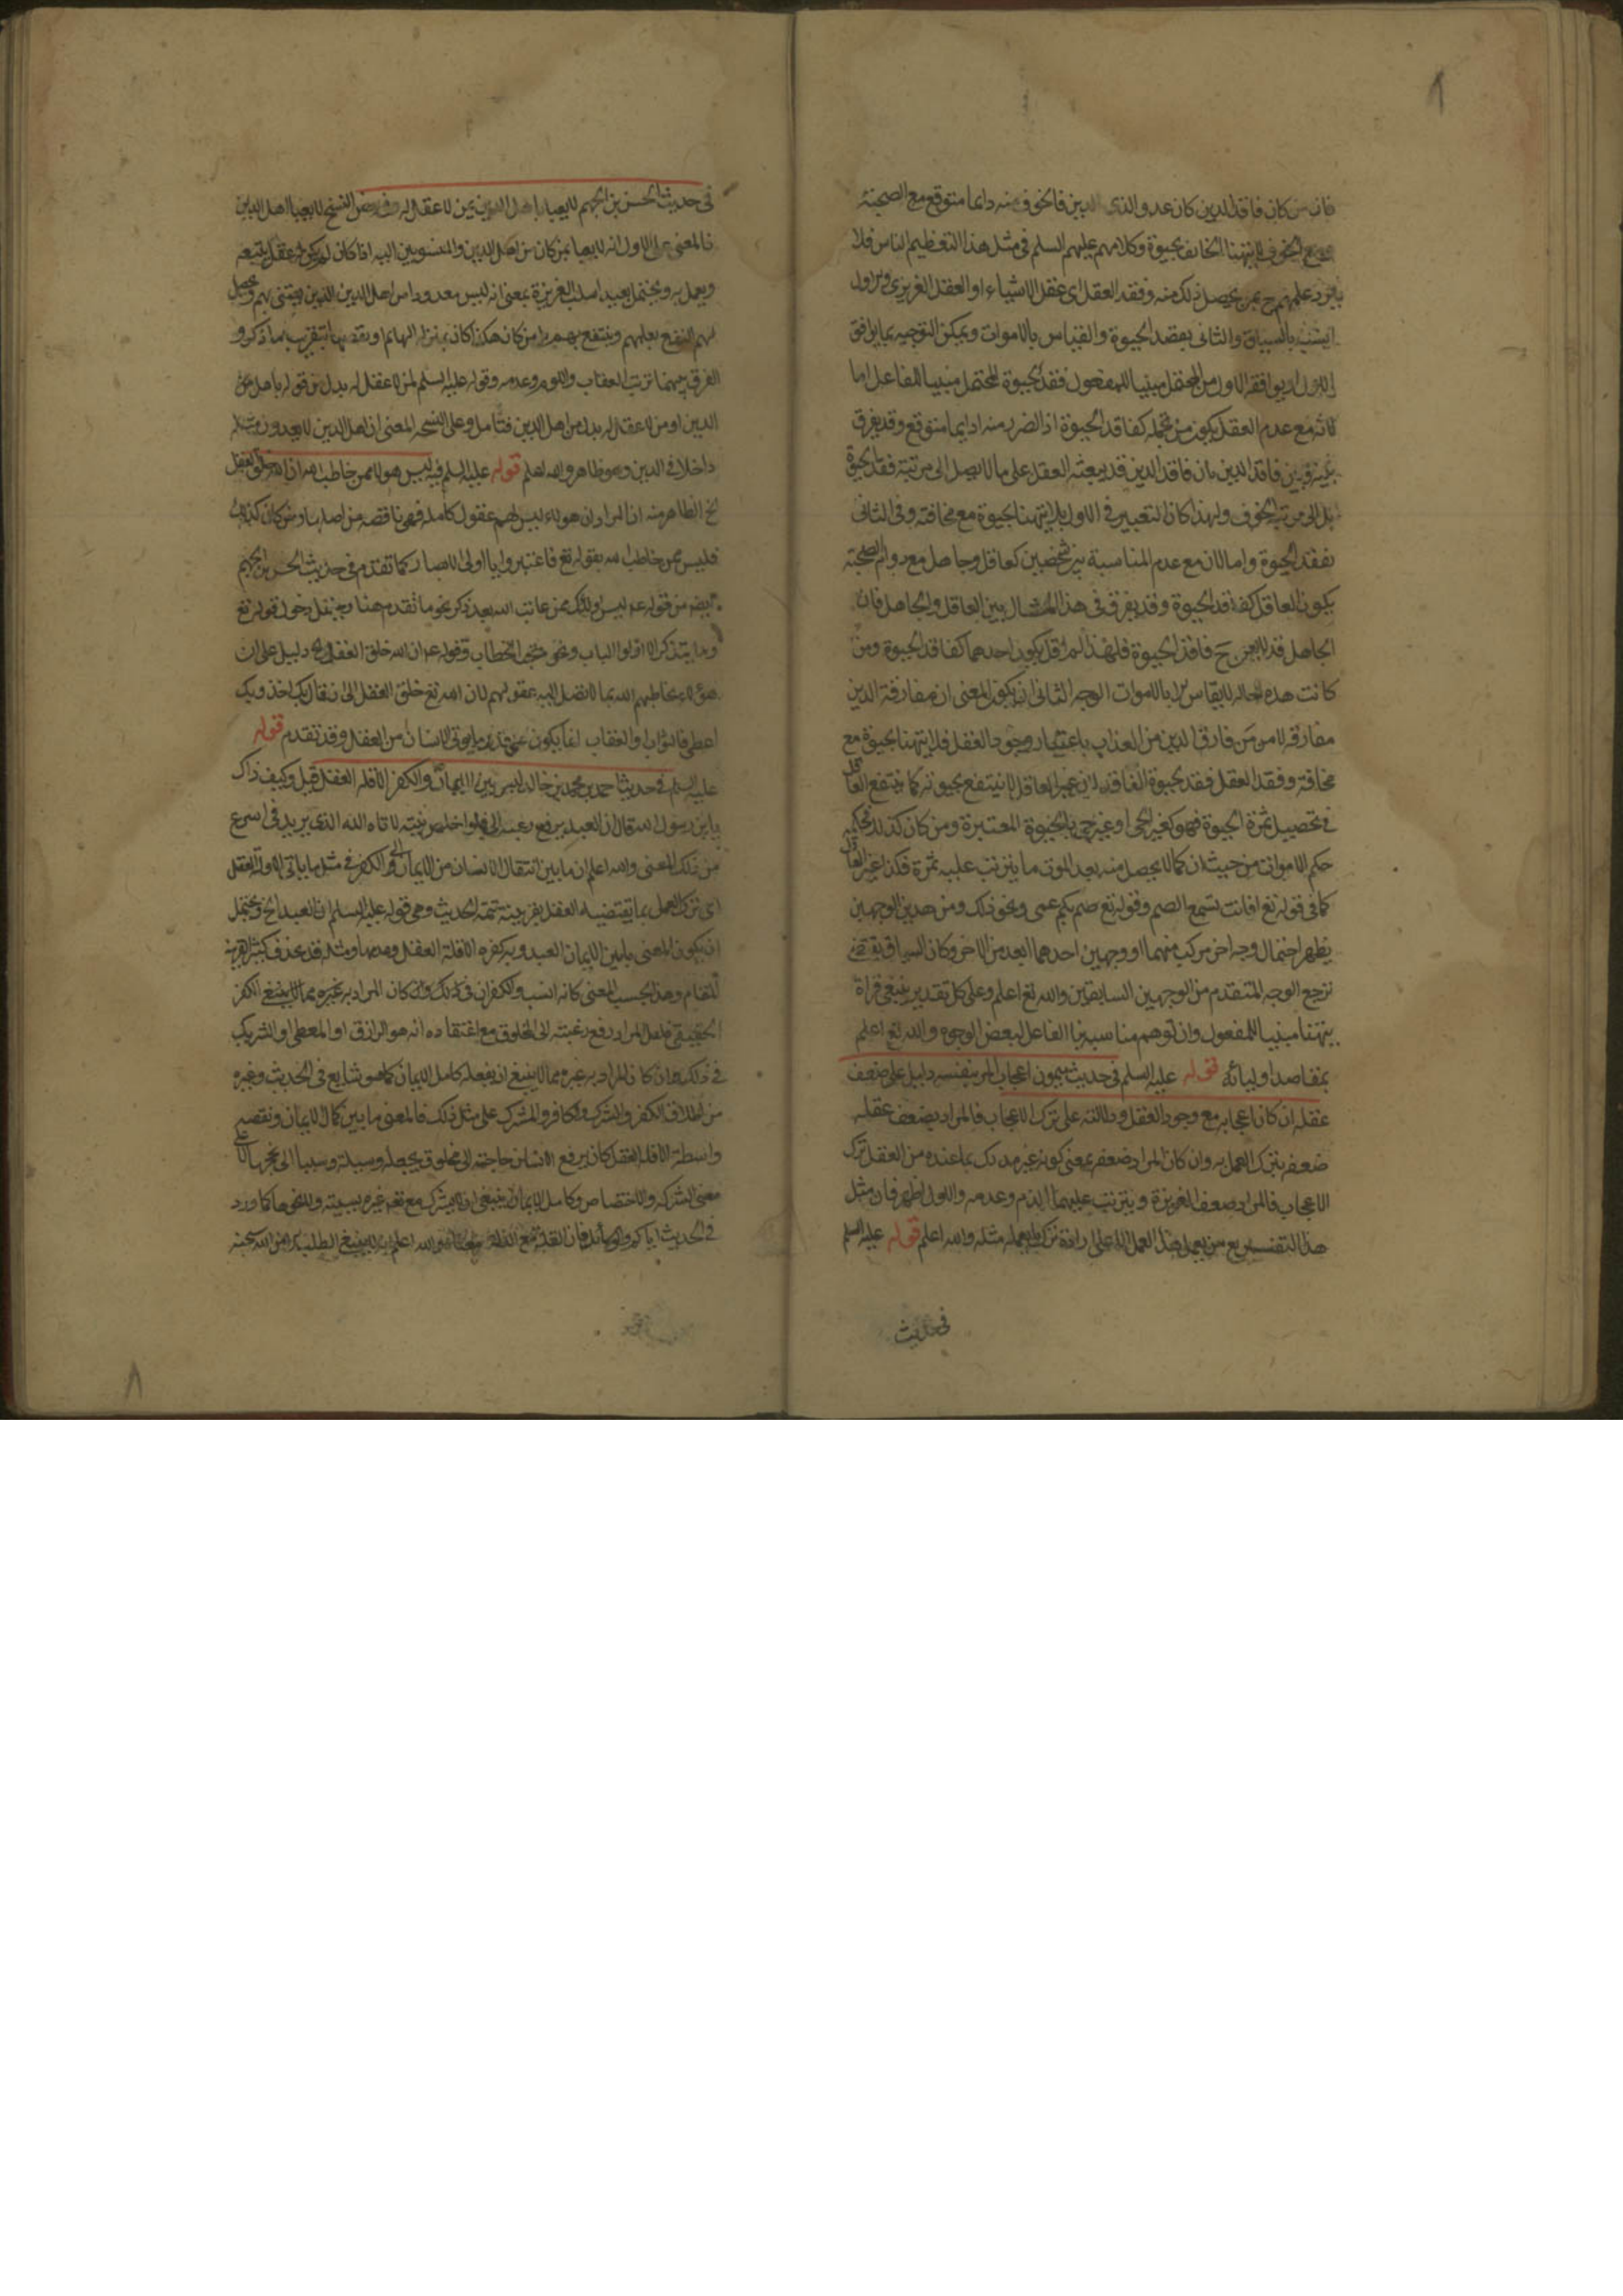 فان من كان فاقد الدين كان عدو الذى الدين فالخوف منه دايما متوقع مع الصحبة
الخوف لا يتهنا الخايف بحيوة وكلامهم عليهم السلم فى مثل هذا التعظيم الناس فلا
يحصل ذلك منه وفقد العقل اى عقل الاشياء او العقل الغريزى والاول
بالسياق والثانى بفقد الحيوة والقياس بالاموات ويمكن التوجيه بما يوافق
الاول او يوافقه الاول من المحتمل مبنيا للمفعول ففقد الحيوة المحتمل مبنيا للفاعل اما
فانه مع عدم العقل يكون من جملة كفاقد الحيوة اذ الضرر منه دايما متوقع وقد يفرق
بينه وبين فاقد الدين بان فاقد الدين قد يبعثه العقل على ما لا يصل الى مرتبة فقد الحيوة
بل الى مرتبة الخوف ولهذا كان التعبير فى الاول بلا يتهنا بحيوة مع مخافته وفى الثانى
بفقد الحيوة واما لان مع عدم المناسبة بين شخصين كعاقل وجاهل مع دوام الصحبة
يكون العاقل كفاقد الحيوة وقد يفرق فى هذا المثال بين العاقل والجاهل فان
الجاهل قد لا يعد ح فاقد الحيوة فلهذا لم اقل يكون احدهما كفاقد الحيوة ومن
كانت هذه حاله لا يقاس الا بالاموات الوجه الثانى ان يكون المعنى ان مفارقة الدين
مفارقة الامن من فارق الدين من العذاب باعتبار وجود العقل فلا يتهنا بحيوة مع
مخافة وفقد العقل فقد بحيوة الفاقد لان غير العاقل لا ينتفع بحيوته كما ينتفع العاقل
فى تحصيل ثمرة الحيوة فهو كغير الحى او غير حى بالحيوة المعتبرة ومن كان كذلك فحكمه
حكم الاموات من حيث ان كما لا يحصل منه بعد الموت ما يترتب عليه ثمرة فكذا غير العاقل
كما فى قوله تع افانت تسمع الصم وقوله تع صم بكم عمى ونحو ذلك ومن هذين الوجهين
يظهر احتمال وجه اخر مركب منهما او وجهين احدهما ابعد من الاخر وكان السياق يقتضى
ترجع الوجه المتقدم من الوجهين السابقين والله تع اعلم وعلى كل تقدير ينبغى قراة
يتهنا مبنيا للمفعول وان توهم مناسبة بنا الفاعل لبعض الوجوه والله تع اعلم
بمقاصد اوليائه قوله عليه السلم فى حديث ميمون اعجاب المرء بنفسه دليل على ضعف
عقله ان كان اعجابه مع وجود العقل ودلالته على ترك الاعجاب فالمراد بضعف عقله
ضعفه بترك العمل به وان كان المراد ضعفه بمعنى كونه غير مدرك بما عنده من العقل ترك
الاعجاب فالمراد ضعف الغريزة ويترتب عليهما الذم وعدمه والاول اظهر فان مثل
هذا التقسيم يع من يعمل هذا العمل الا على ارادة ترك ما يعمله مثله والله اعلم قوله عليه السلم
فى حديث
فى حديث الحسن بن الجهم لا يعبا باهل الدين ممن لا عقل له وفى بعض النسخ لا يعبا اهل الدين
فالمعنى على الاول انه لا يعبا بمن كان من اهل الدين والمنسوبين اليه اذا كان لم يكن له عقل يتبعه
ويعمل به ويحتمل بعيدا سلب الغريزة بمعنى انه ليس معدودا من اهل الدين الذين يعتنى بهم ويحصل
لهم النفع بعلمهم وينتفع بهم من كان هكذا كان بمنزلة البهائم
الفرق بينهما ترتب العقاب واللوم وعدمه وقوله عليه السلم لمن لا عقل له بدل من قوله باهل
الدين او من لا عقل له بدل من اهل الدين فتامل وعلى النسخه المعنى ان اهل الدين لا يعدون مثله
داخلا فى الدين وهو ظاهر والله اعلم قوله عليه السلم فيه ليس هولاء ممن خاطب الله ان الله خلق العقل
الخ الظاهر منه ان المراد ان هولاء ليس لهم عقول كاملة فهى ناقصه من اصلها ومن كان كذلك
فليس ممن خاطب الله بقوله تع فاعتبروا يا اولى الابصار كما تقدم فى حديث الحسن بن الجهم
ايضه من قوله عم ليس اولئك ممن عاتب الله بعد ذكر نحو ما تقدم هنا ومثل دخول قوله تع
وما يتذكر الا اولوا الالباب ونحوه تحت الخطاب وقوله عم ان الله خلق العقل الخ دليل على ان
هولاء يخاطبهم الله بما لا تصل اليه عقولهم لان الله تع خلق العقل الى ان قال بك اخذ وبك
اعطى فالثواب والعقاب انما يكون على قدر ما يوتى الانسان من العقل وقد تقدم قوله
عليه السلم فى حديث احمد بن محمد بن خالد ليس بين الايمان والكفر الا قلة العقل قيل وكيف ذاك
يا بن رسول الله قال ان العبد يرفع رغبته الى مخلوق فلو اخلص نيته لاتاه الله الذى يريد فى اسرع
من ذلك المعنى والله اعلم ان ما بين انتقال الانسان من الايمان الى الكفر فى مثل ما ياتى الا قلة العقل
اى ترك العمل بما يقتضيه العقل بقرينة تتمة الحديث وهى قوله عليه السلم ان العبد الخ ويحتمل
ان يكون المعنى ما بين ايمان العبد وبين كفره الا قلة العقل ومثله قد يحذف كثيرا لقرينة
المقام وهذا بحسب المعنى كانه انسب والكفران فى ذلك وان كان المراد به غيره مما لا ينبغى الكفر
الحقيقى فلعل المراد رفع رغبته الى المخلوق مع اعتقاده انه هو الرازق او المعطى او الشريك
فى ذلك وان كان المراد به غيره مما لا ينبغى ان يفعله كامل الايمان كما هو شايع فى الحديث وغيره
من اطلاق الكفر والشرك والكافر والمشرك على مثل ذلك فالمعنى ما بين كمال الايمان ونقصه
واسطة الا قلة العقل كان يرفع الانسان حاجته الى مخلوق يجعله وسيلة وسببا الى نحوها
معنى الشركة والاختصاص وكامل الايمان ينبغى ان لا يشرك مع تع غيره كما ورد
فى الحديث والله اعلم